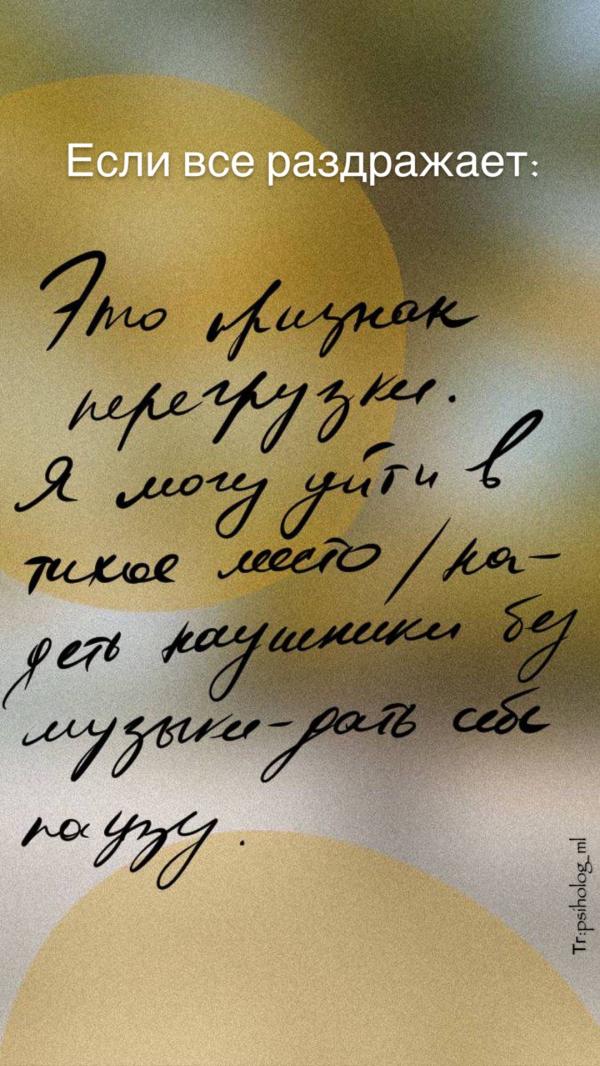 Если все раздражает:
Это признак
перегрузки.
Я могу уйти в
тихое место / на-
деть наушники без
музыки - дать себе
паузу.
Tr:psiholog_ml